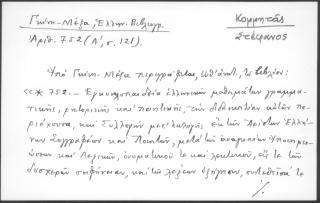 Γκίνη-Μέξα, Ἑλλην. Βιβλιογρ.
Ἀριθ. 752 (Α', σ. 121).
Κομμητᾶς
Στέφανος
Ὑπὸ Γκίνη-Μέξα περιγράφεται, ὡς βιβλίον:
«* 752.- Ἐγκυκλοπαιδεία ἑλληνικῶν μαθημάτων γραμμα-
τικῆς, ῥητορικῆς καὶ ποιητικῆς, τὴν διδασκαλίαν αὐτῶν πε-
ριέχουσα, καὶ Συλλογὴν μετ' ἐκλογῆς ἐκ τῶν Ἀρίστων Ἑλλή-
νων Συγγραφέων καὶ Ποιητῶν, μετὰ τῶν ἀναγκαίων Ὑποσημει-
ώσεων καὶ Λεξικῶν, ὀνοματικοῦ τε καὶ τεχνικοῦ, εἴς τε τῶν
δυσχερῶν σαφήνειαν, καὶ τῶν λέξεων ἐξήγησιν, συντεθεῖσα τε
./.